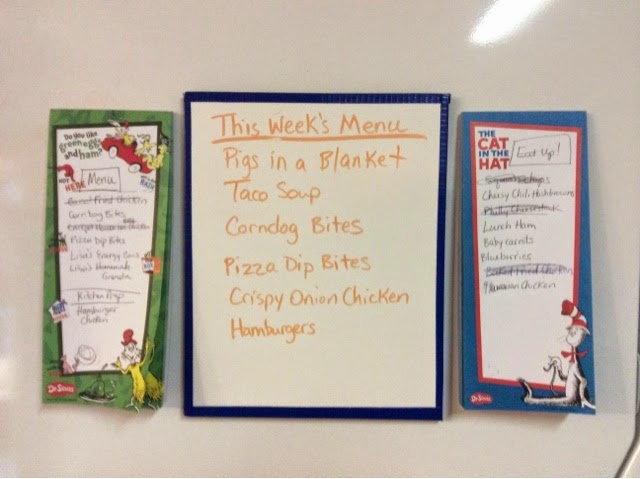 Do you like
green eggs
and ham?
NOT HERE
Menu
Baked Fried Chicken
Corn dog Bites
Pizza Dip Bites
Lisa's Energy
Lisa's Homemade
Granola
Kitchen Prep
Hamburger
Chicken
Dr. Seuss
This Week's Menu
Pigs in a Blanket
Taco Soup
Corndog Bites
Pizza Dip Bites
Crispy Onion Chicken
Hamburgers
THE
CAT
IN THE
HAT
Eat Up!
Cheesy Chili Hashbrowns
Philly
Lunch Ham
Baby carrots
Blueberries
Baked Fried Chicken
Hawaiian Chicken
Dr. Seuss